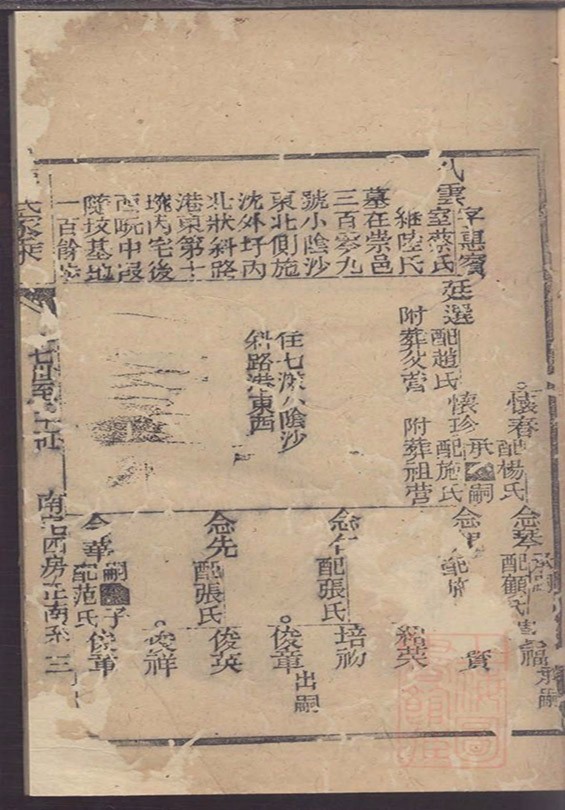 雲
字
室蔡氏
繼陸氏
墓在崇邑
三百零九
號小陰沙
東北側施
沈外圩內
北狀斜路
港東第十
塊內宅後
西
中
墳基地
一百餘步
廷選
配趙氏
附葬父營
住七滧小陰沙
斜路港東西
懷春
配楊氏
懷珍
承
嗣
配施氏
附葬祖營
念琴
配顧氏
福
承嗣
念
配
寶
紹英
念仁
配張氏
培初
俊章
出嗣
念先
配張氏
俊英
俊祥
念華
嗣
子
配范氏
俊章
氏家乘
七世至十
南
四房正南系
三